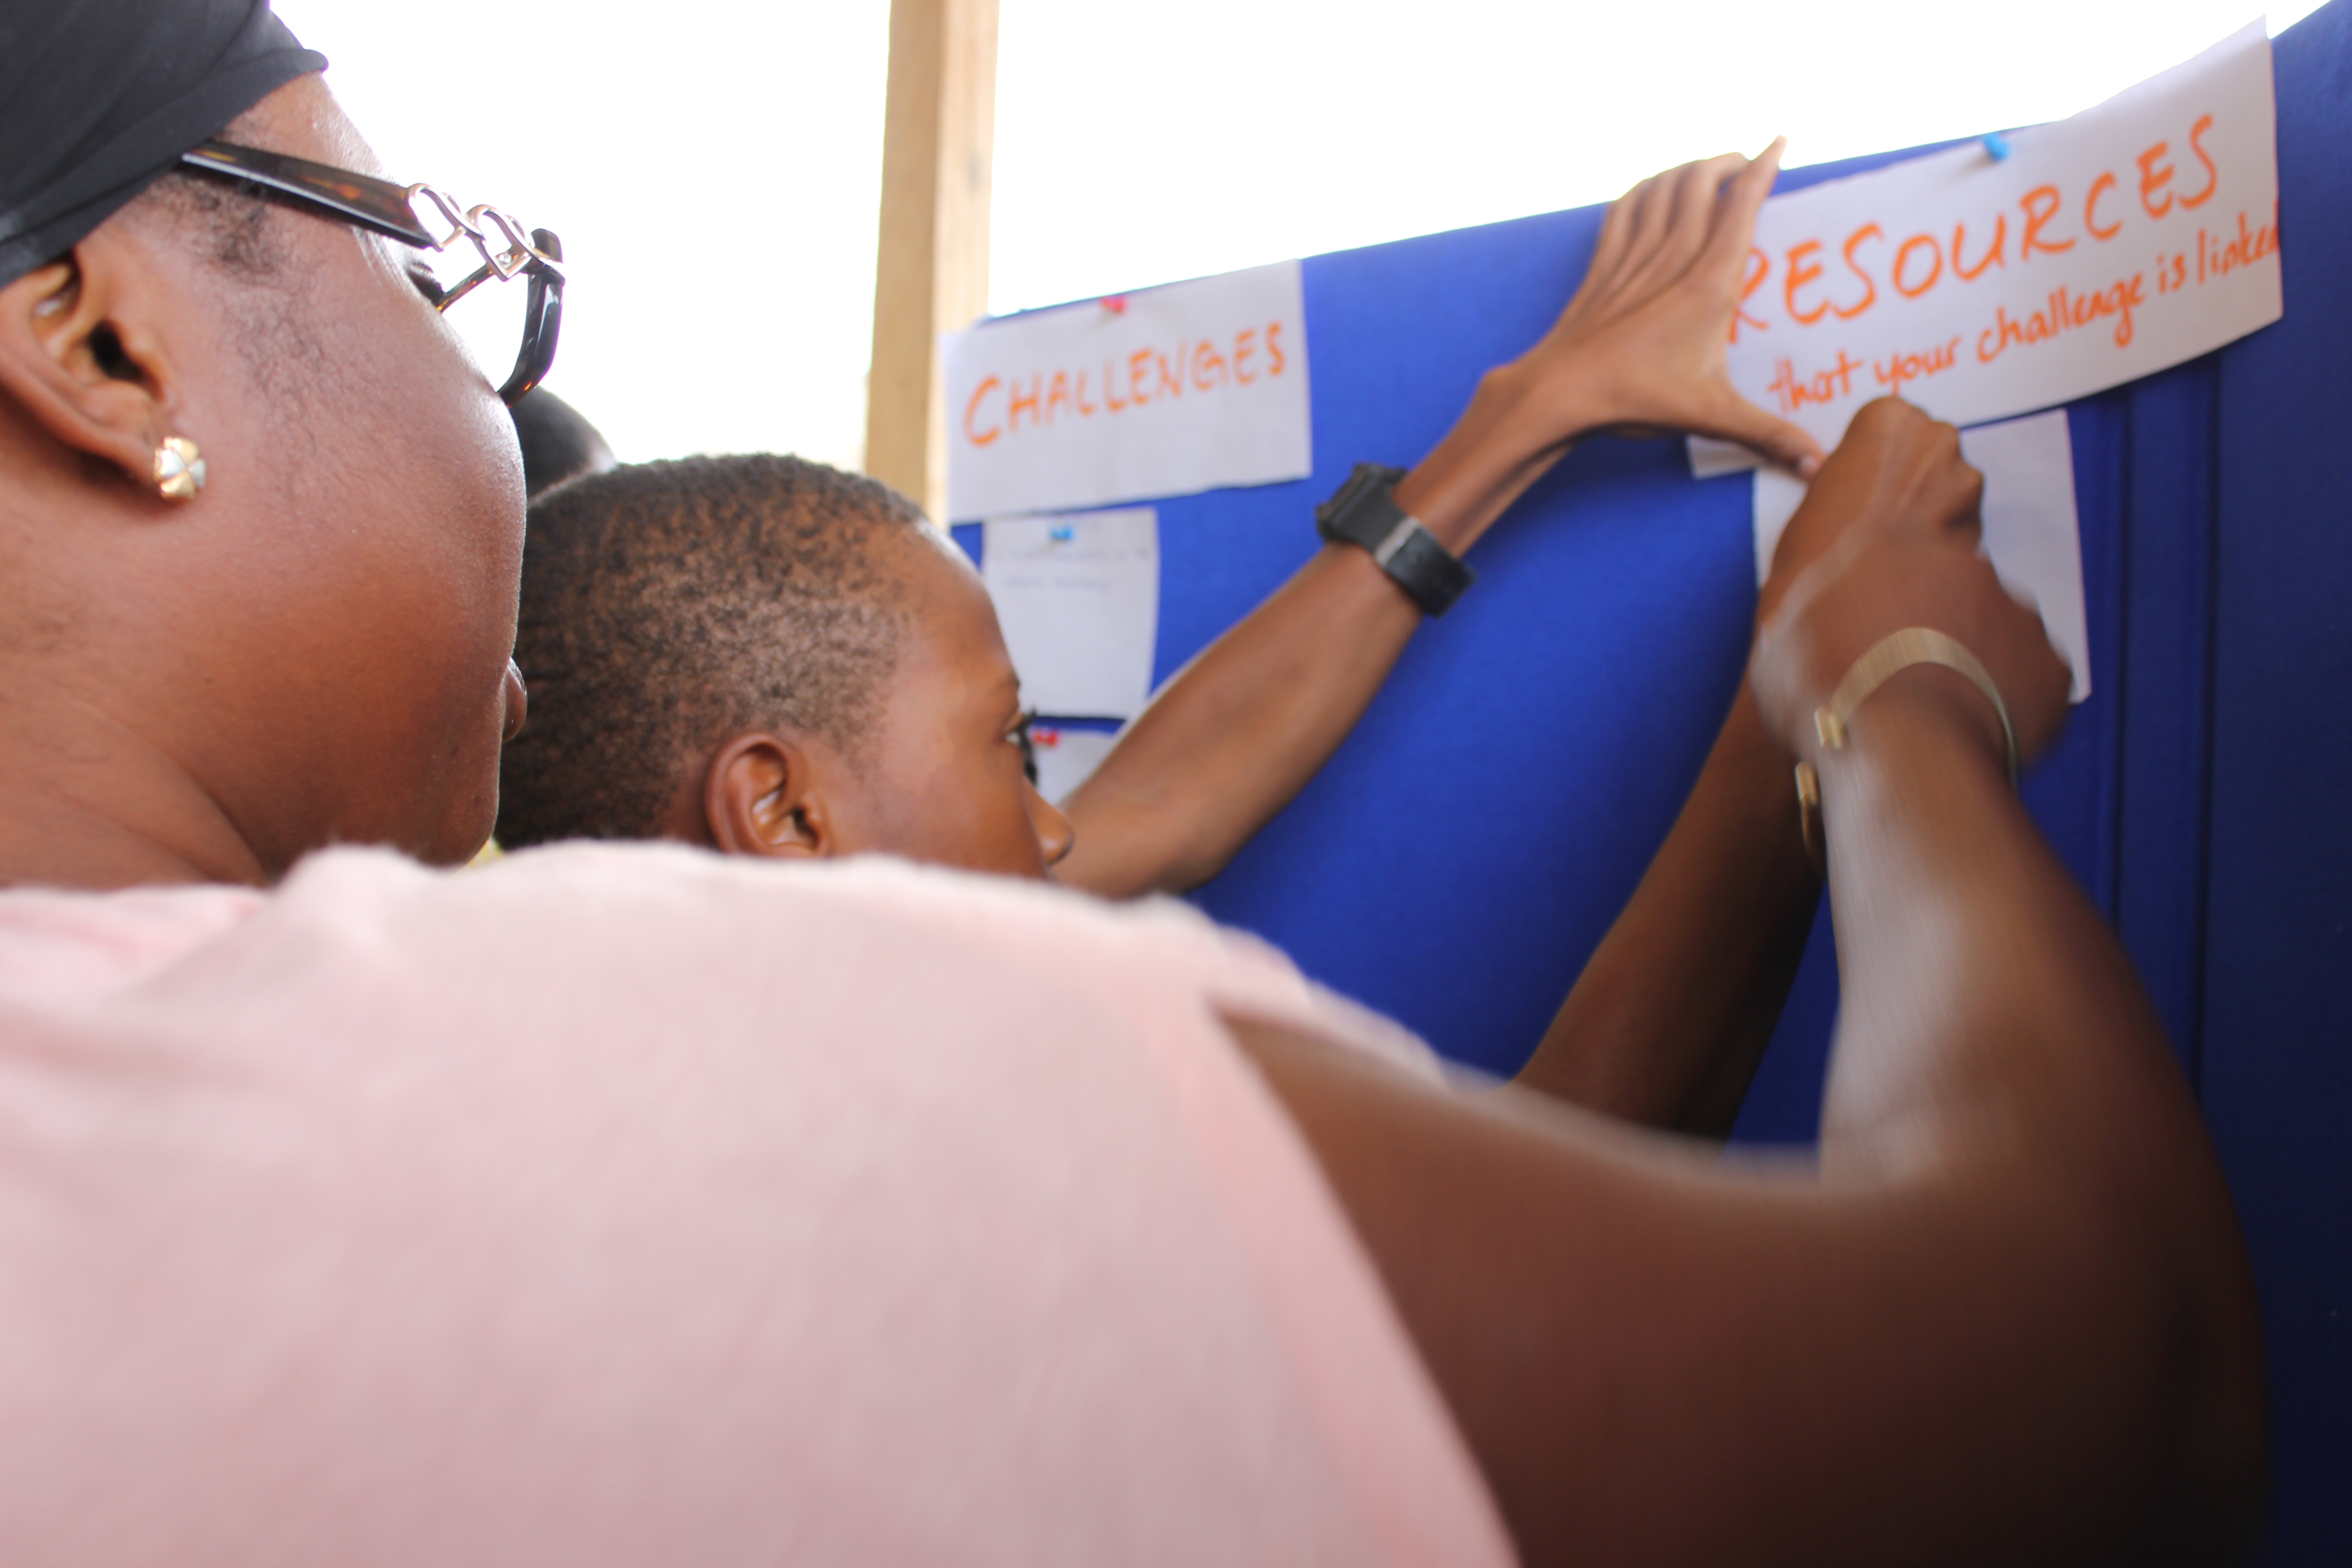 CHALLENGES
RESOURCES
that your challenge is linked